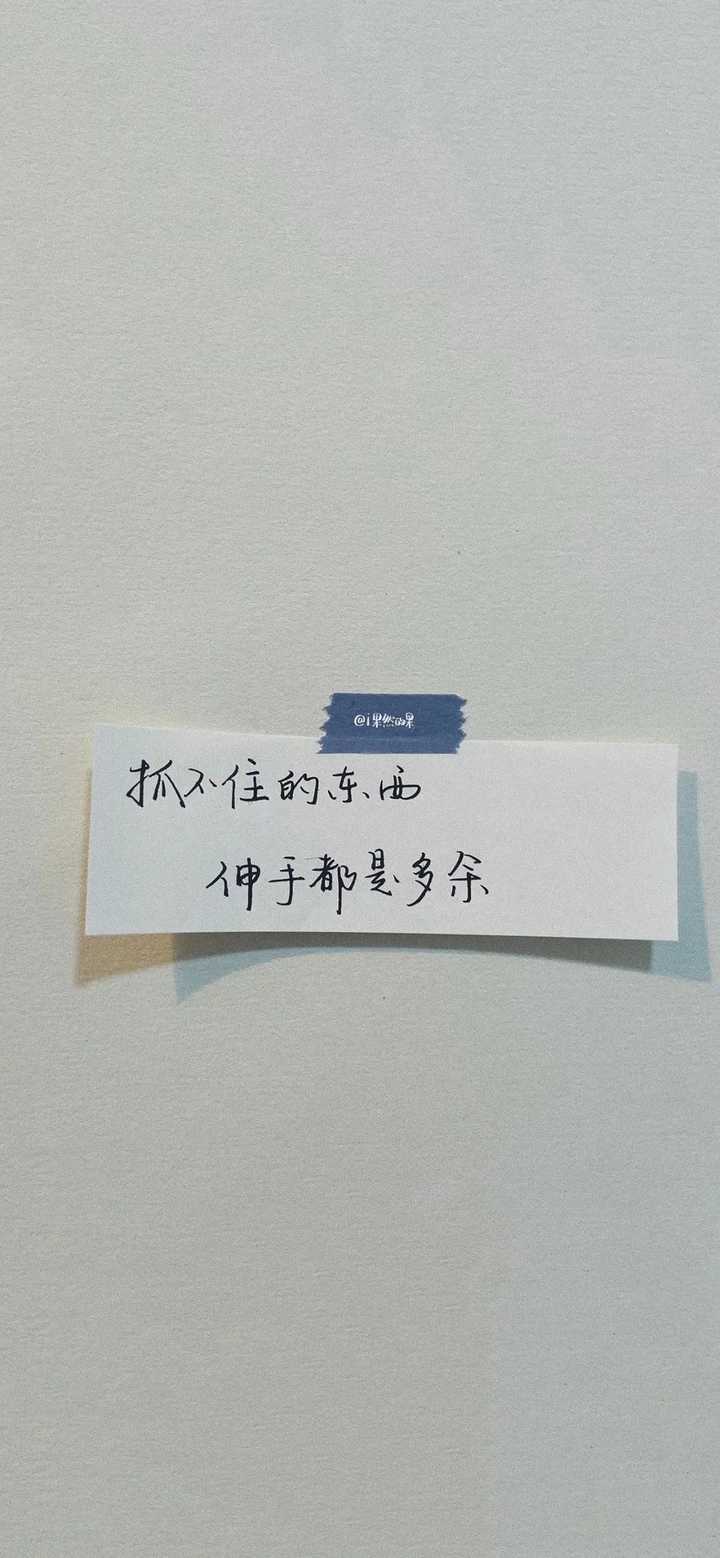 @i果然的果
抓不住的东西
伸手都是多余